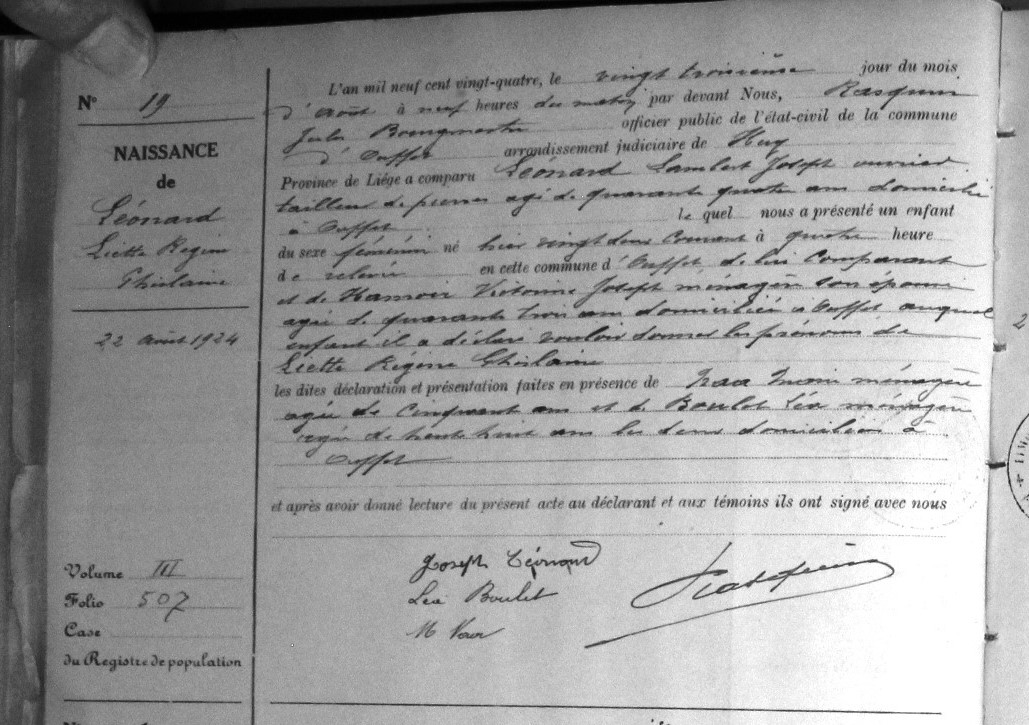 N° 19
NAISSANCE
de
Léonard
Liette Régine
Ghislaine
22 août 1924
Volume III
Folio 507
Case
du Registre de population
L'an mil neuf cent vingt-quatre, le vingt troisième jour du mois
d'août à neuf heures du matin par devant Nous, Rasquin
Jules Bourgmestre officier public de l'état-civil de la commune
d'Ouffet arrondissement judiciaire de Huy
Province de Liége a comparu Léonard Lambert Joseph ouvrier
tailleur de pierres agé de quarante quatre ans domicilié
à Ouffet le quel nous a présenté un enfant
du sexe féminin né hier vingt deux courant à quatre heure
de relevée en cette commune d'Ouffet de lui comparant
et de Hamoir Victorine Joseph ménagère son épouse
agée de quarante trois ans domiciliée à Ouffet auquel
enfant il a déclaré vouloir donner les prénoms de
Liette Régine Ghislaine
les dites déclaration et présentation faites en présence de ménagère
agée de cinquante ans et de Boulet Léa ménagère
agée de trente huit ans les deux domiciliées à
Ouffet
et après avoir donné lecture du présent acte au déclarant et aux témoins ils ont signé avec nous
Joseph Léonard
Léa Boulet
M